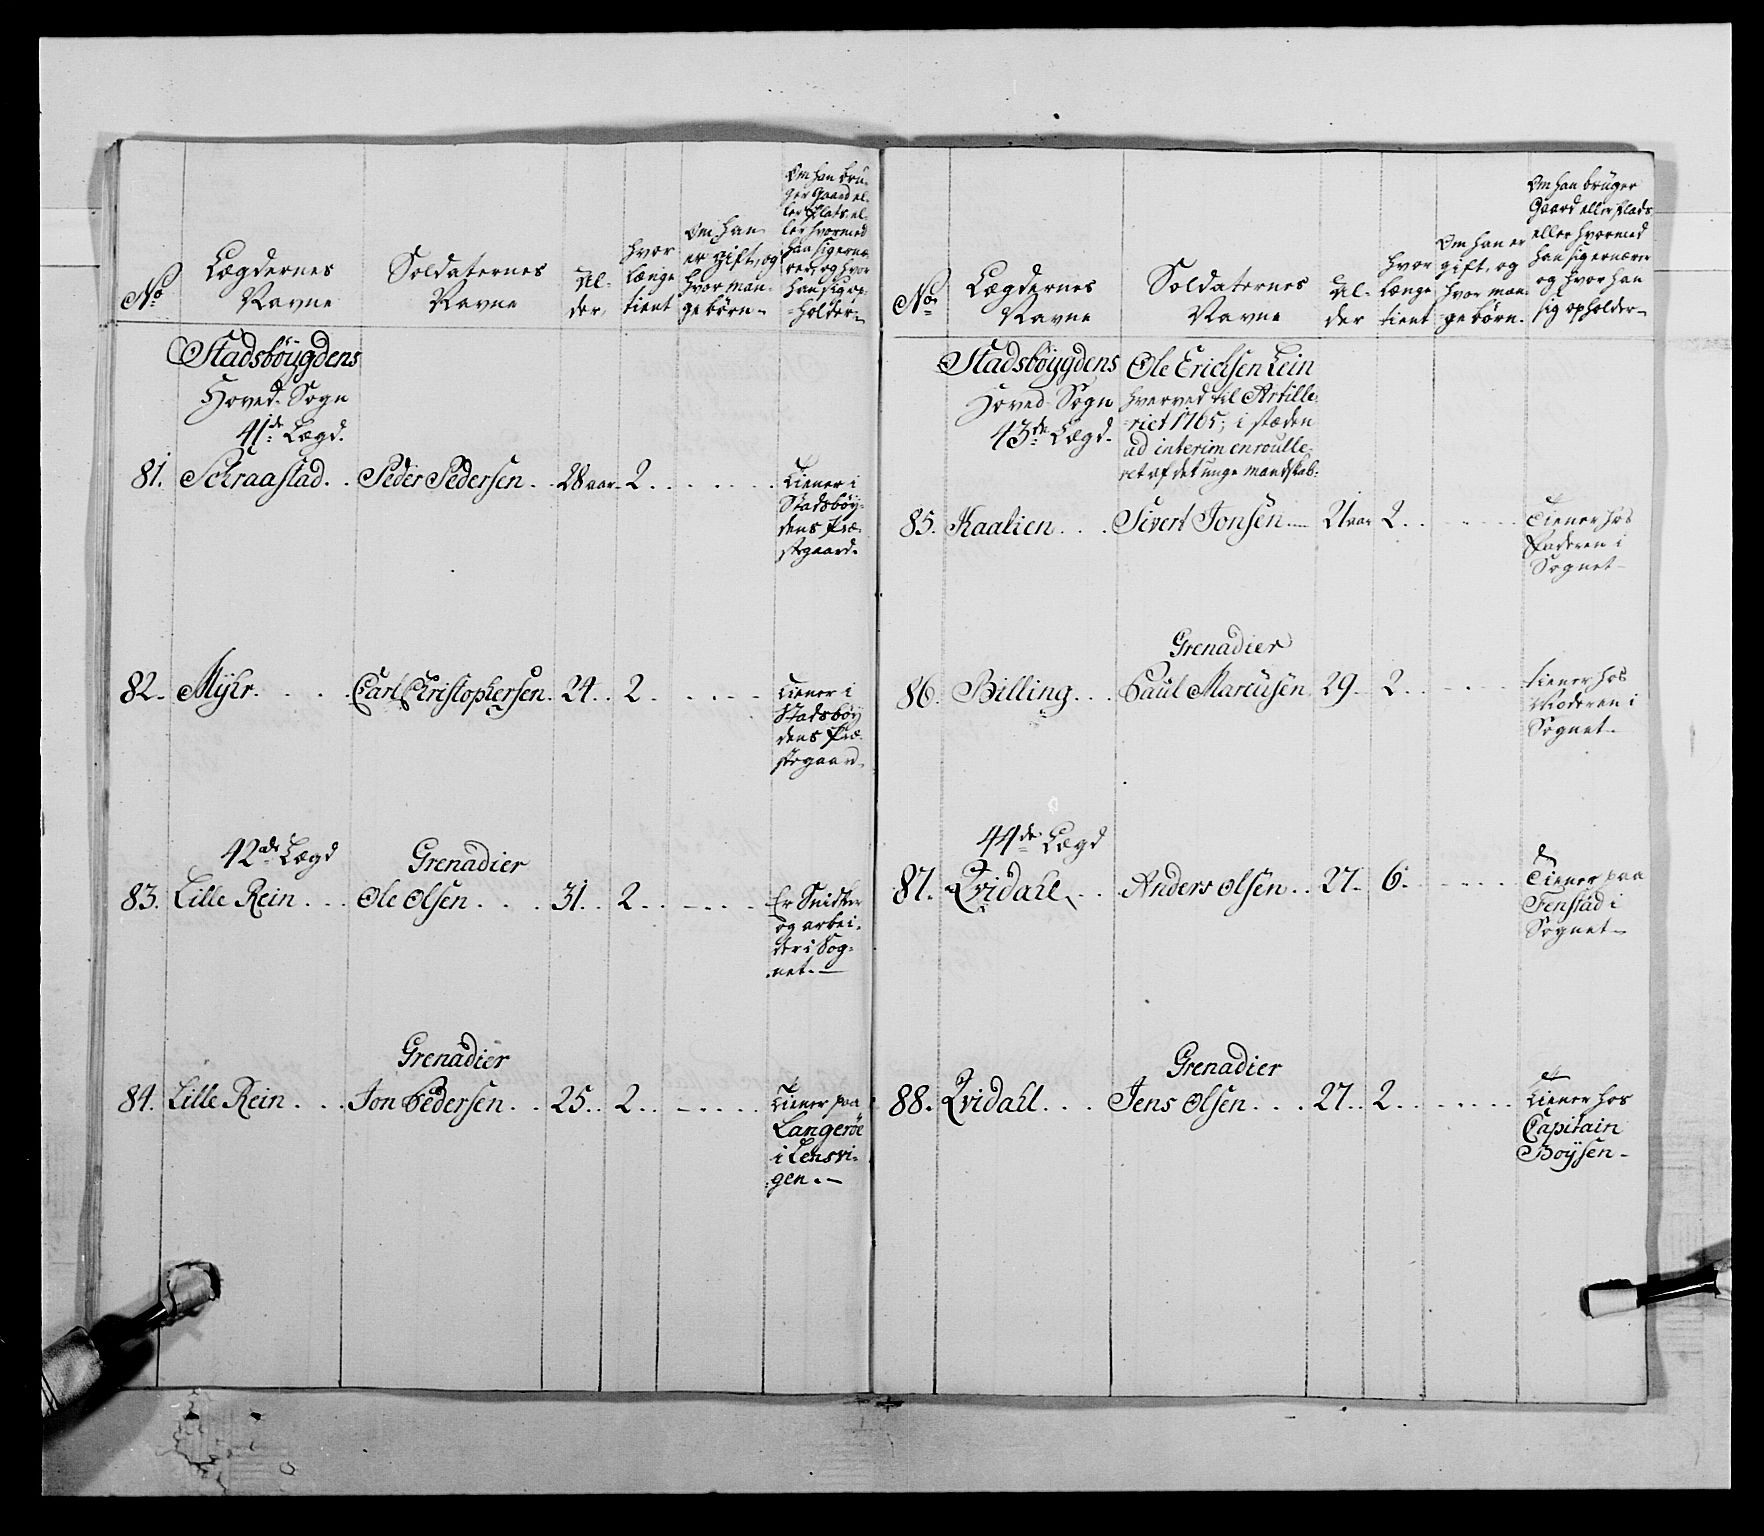 No
Lægdernes
Navne
Soldaternes
Navne
Al-
der,
hvor
længe
tient
Om han
er gift, og
hvor man-
ge börn-
Om han bru-
ger Gaard el-
ler Plads el-
ler hvormed
han sig ernæ-
rer, og hvor
han sig op-
holder-
Stadsböygdens
Hoved Sogn
41de Lægd.
81. Schraastad. . Peder Pedersen. . 28 aar. 2. . . . . . . Tiener i
Stadsböy-
dens Præ-
stegaard.
82. Myhr. . . . . Carl Christophersen. 24. . 2 . . . . . Tiener i
Stadsböy
dens Præ-
stegaard.
42de Lægd Grenadier
83. Lille Rein . . . Ole Olsen. . . . 31. . 2. . . . . . Er Snidker
og arbei-
der i Sog-
net. -
Grenadier
84. Lille Rein . . . Jon Pedersen. . 25. . 2. . . . . . Tiener paa
Langeröe
i Lensvi-
gen. -
No
Lægdernes
Navne
Soldaternes
Navne
Al-
der
hvor
længe
tient
Om han er
gift, og
hvor man-
ge börn.
Om han bruger
Gaard eller Plads
eller hvormed
han sig ernærer
og hvor han
sig opholder-
Stadsböygdens
Hoved Sogn
43de Lægd.
Ole Erichsen Lein
hverved til Artille-
riet 1765; i stæden
ad interim enroulle-
ret af det unge mandskab.
85. Kaalien. . . . Sivert Jonsen. - 21 aar 2. . . . . . Tiener hos
Faderen i
Sognet-
Grenadier
86. Billing. . . Paul Marcusen 29. 2. . . . . tiener hos
Moderen i
Sognet-
44de Lægd
87. Qvidahl, . . Anders Olsen. . 27. 6. . . . . . Tiener paa
Fenstad i
Sognet-
Grenadier
88. Qvidahl. . . . Jens Olsen. . . . 27. . 2. . . . . . . Tiener hos
Capitain
Boysen-